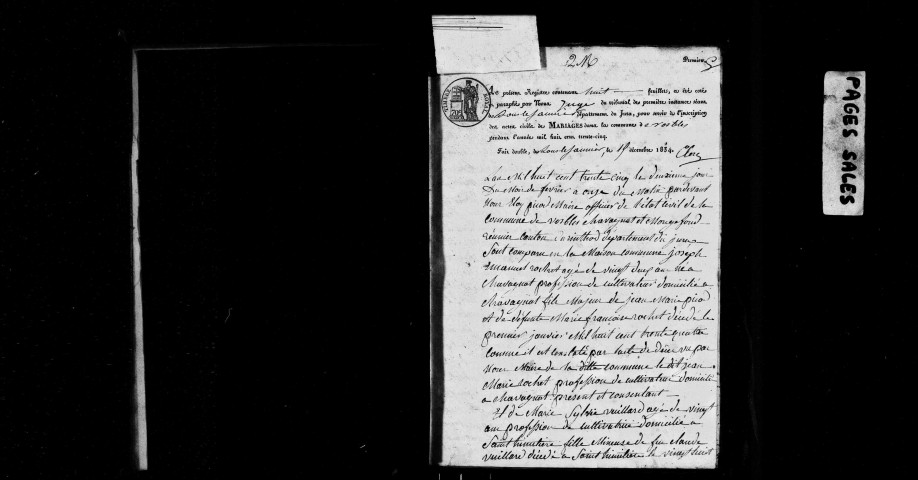 2M
Premier
Le présent Registre contenant huit feuillets, a été coté
& paraphé par Nous Juge du tribunal de première instance séant
à Lons le Saunier département du Jura, pour servir de l'inscription
des actes civils de MARIAGES dans la commune de vosbles
pendant l'année mil huit cent trente-cinq.
Fait double, à Lons le Saunier, le 15 décembre 1834.
TIMBRE ROYAL
L'an Mil huit cent trente cinq le deuxieme jour
Du Mois de fevrier a onze du Matin pardevant
Nous Eloy piod Maire officier de l'état civil de la
Commune de vosbles Chavagnat et Mongefond
réunier canton d'arinthod département du jura
Sont comparu en la Maison commune joseph
Emanuel rochet agé de vingt deux an né a
Chavagnat profession de cultivateur domicilié a
Chavagnat fils Majeur de jean Marie piod
et de défunte Marie francoise rochet décédé le
premier janvier Mil huit cent trente quatre
comme il est constaté par l'acte de décè vu par
Nous Maire de la ditte commune le dit jean
Marie rochet profession de cultivateur domicilié
a chavagnat present et consentant
Et de Marie Sylvie vuillard agé de vingt
ans profession de cultivatrice domicilié a
Saint himetiere fille Mineuse de feu claude
vuillard décédé a Saint himetiere le vingt huit
PAGES SALES